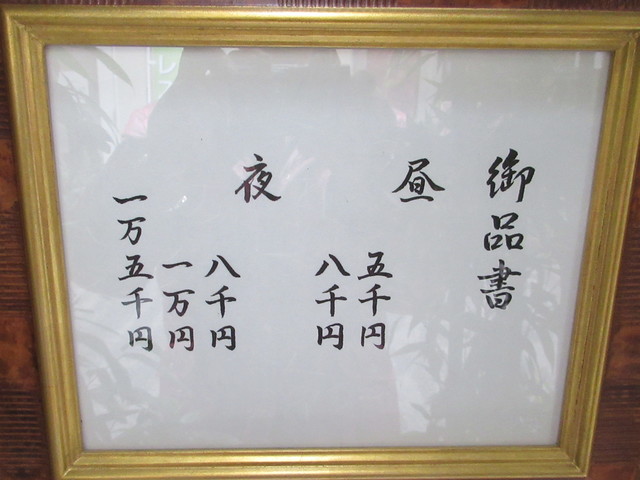 御品書
昼
五千円
八千円
夜
八千円
一万円
一万五千円